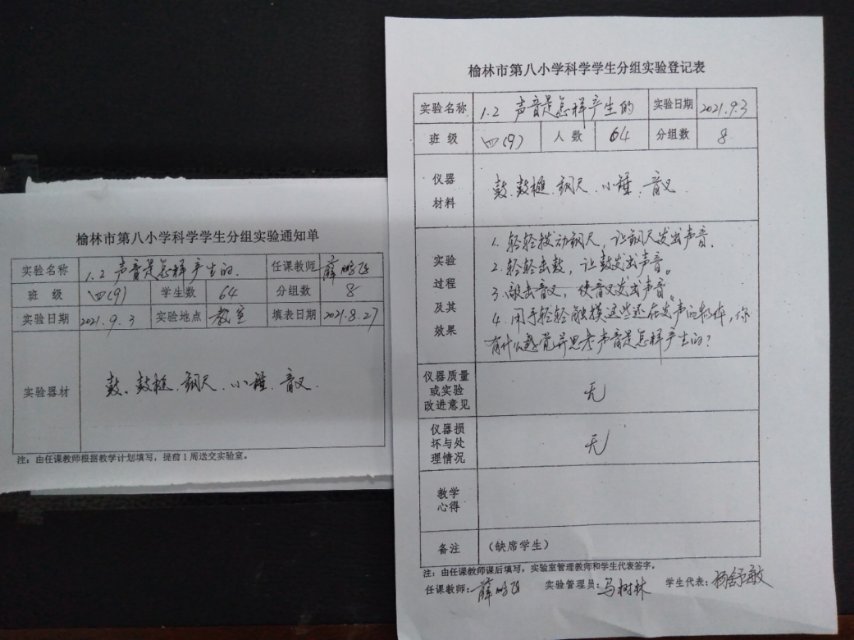 榆林市第八小学科学学生分组实验通知单
实验名称 1.2 声音是怎样产生的. 任课教师 薛鹏飞
班 级 四(9) 学生数 64 分组数 8
实验日期 2021.9.3 实验地点 教室 填表日期 2021.8.27
实验器材 鼓、鼓槌、钢尺、小锤、音叉.
注：由任课教师根据教学计划填写，提前1周送交实验室。
榆林市第八小学科学学生分组实验登记表
实验名称 1.2 声音是怎样产生的 实验日期 2021.9.3
班 级 四(9) 人 数 64 分组数 8
仪器
材料
鼓、鼓槌、钢尺、小锤、音叉.
实验
过程
及其
效果
1. 轻轻拨动钢尺，让钢尺发出声音.
2. 轻轻击鼓，让鼓发出声音。
3. 敲击音叉，使音叉发出声音。
4. 用手轻轻触摸这些还在发声的物体，你
有什么感觉并思考声音是怎样产生的？
仪器质量
或实验
改进意见
无
仪器损
坏与处
理情况
无
教学
心得
备注 （缺席学生）
注：由任课教师课后填写，实验室管理教师和学生代表签字。
任课教师：薛鹏飞 实验管理员：马树林 学生代表：杨舒敏